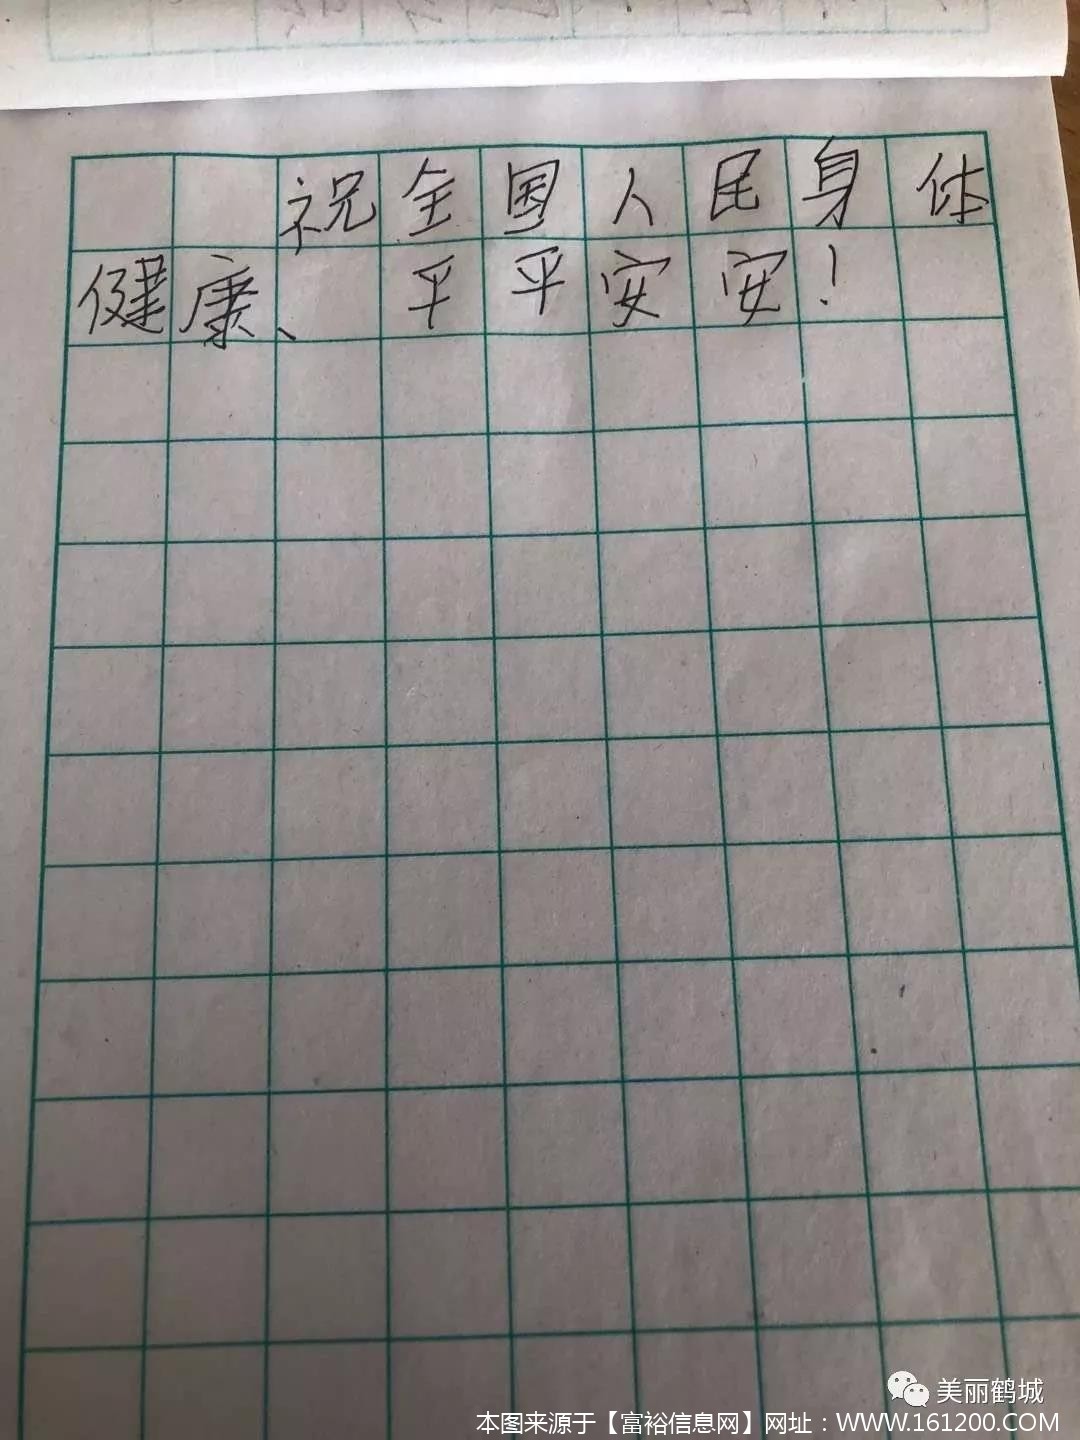 祝全国人民身体
健康、平平安安！
美丽鹤城
本图来源于【富裕信息网】网址：WWW.161200.COM